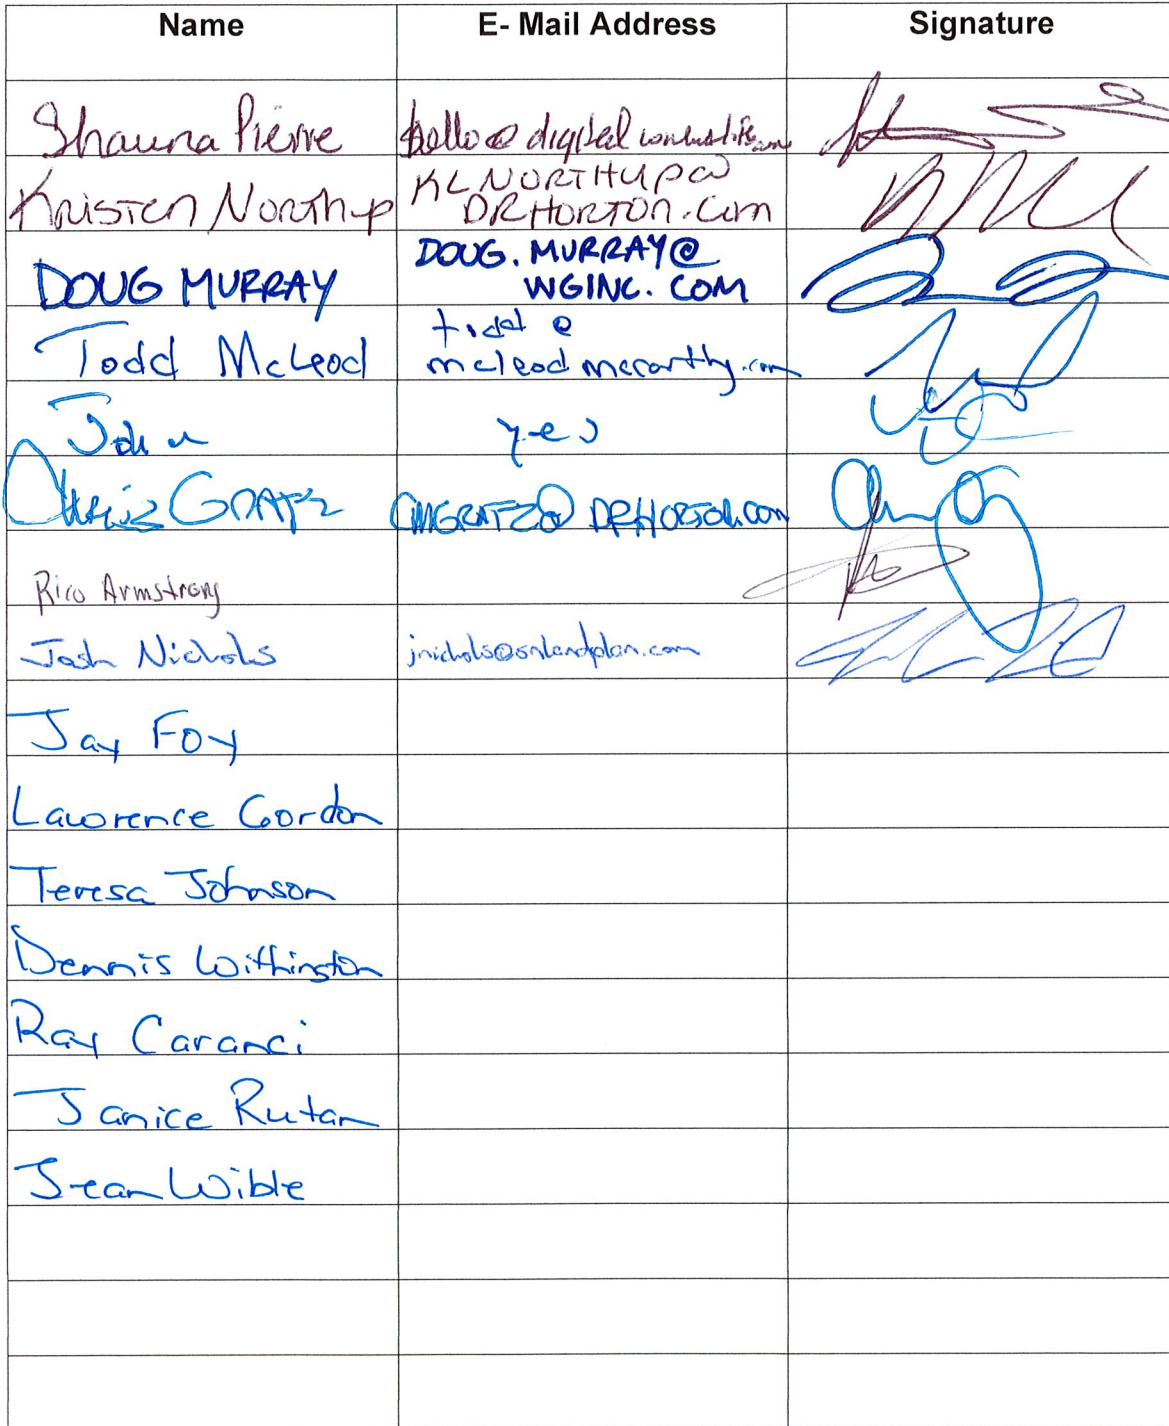 Name E- Mail Address Signature
Shauna Pierre hello@digital
Kristen Northup KLNORTHUP@
DRHORTON.com
DOUG MURRAY DOUG.MURRAY@
WGINC.COM
Todd McLeod todd@
mcleodmccarthy.com
John yes
Chris GRATZ CMGRATZ@DRHORTON.COM
Rico Armstrong
Josh Nichols jnichols@snlandplan.com
Jay Foy
Lawrence Gordon
Teresa Johnson
Dennis Withington
Ray Caranci
Janice Rutan
Jean Wible